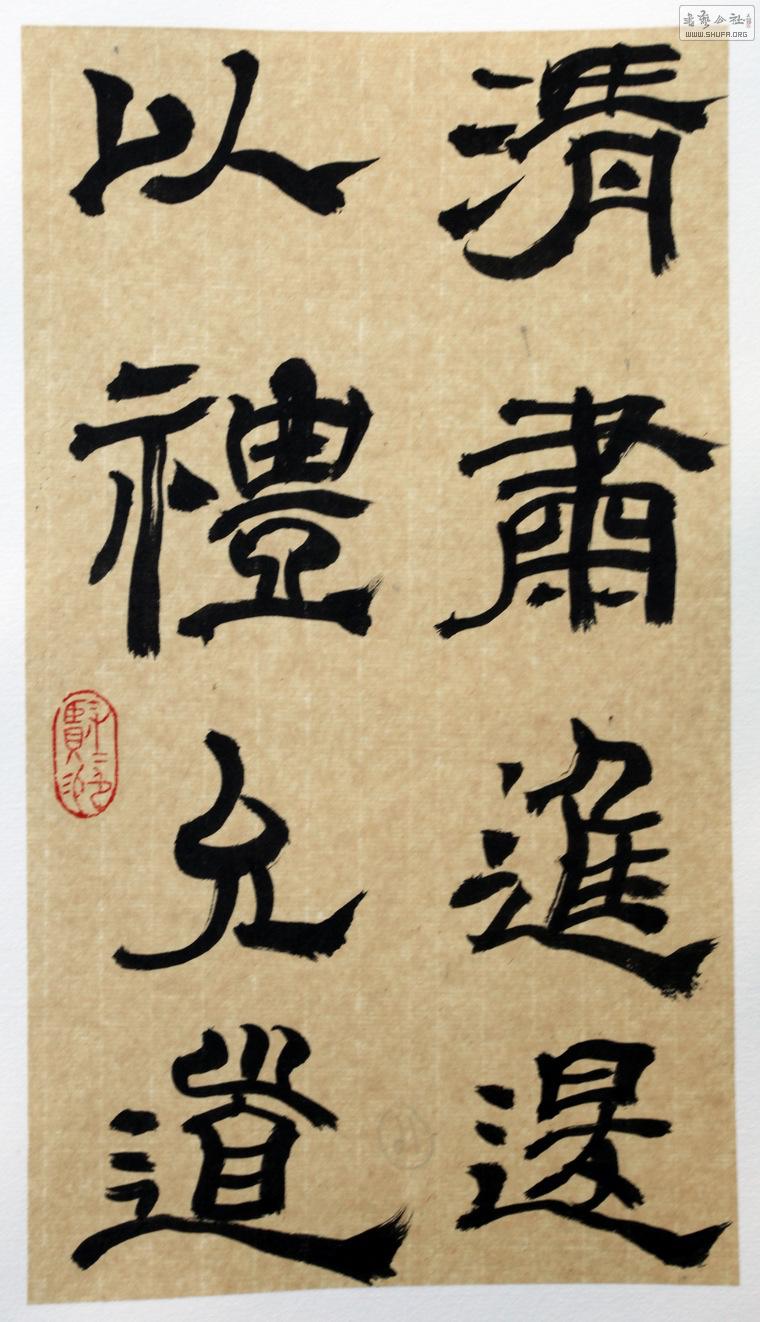 清肅進退
以禮允道
書藝公社
WWW.SHUFA.ORG